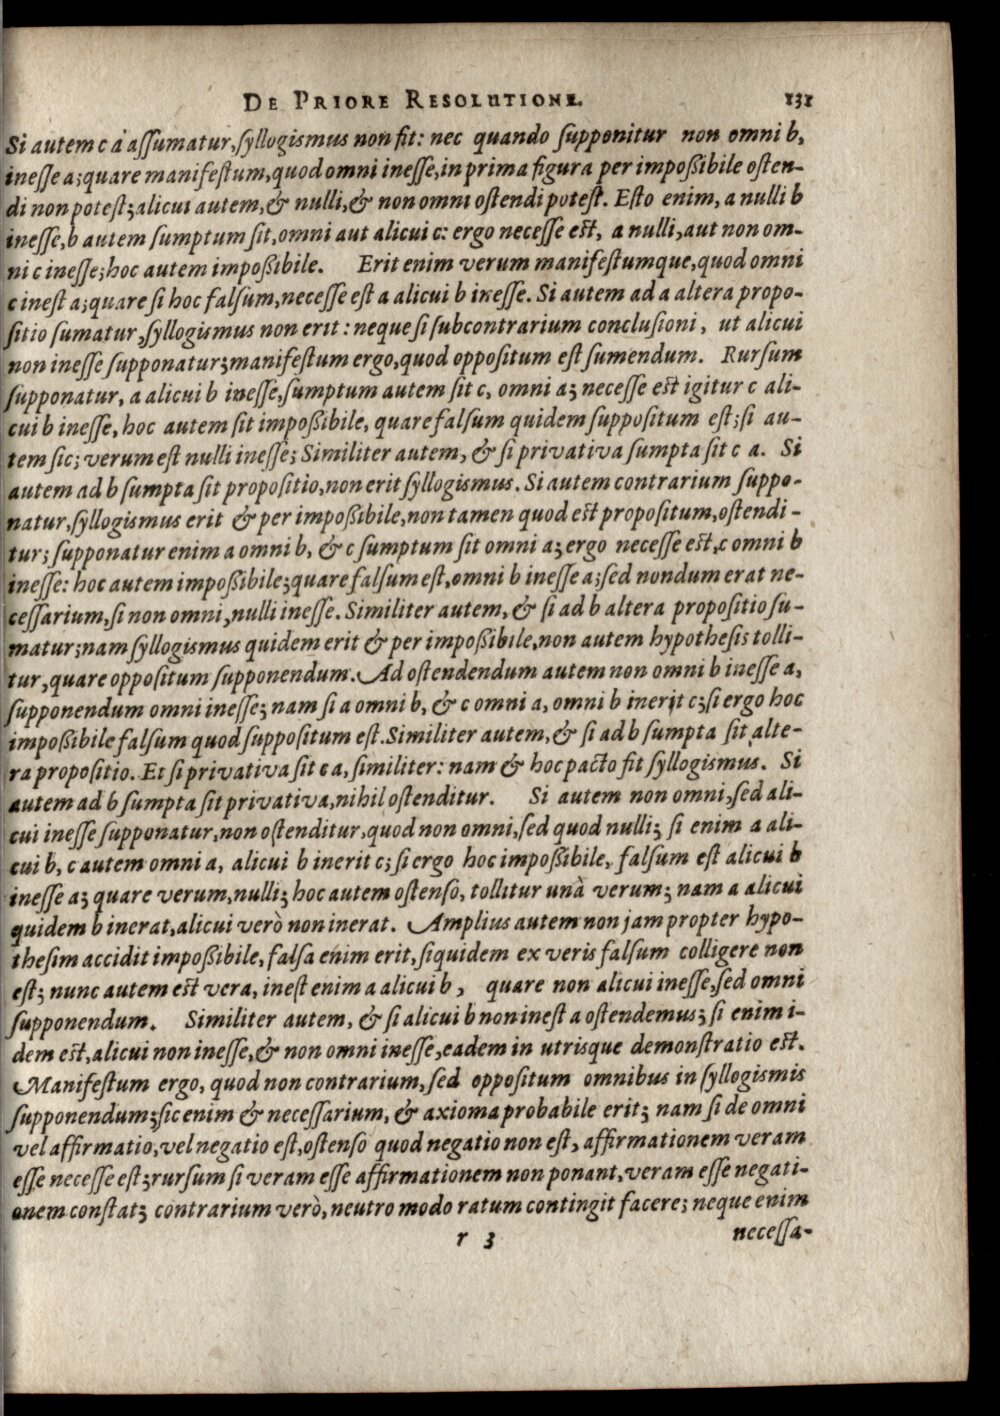 DE PRIORE RESOLUTIONE. 131
Si autem c à assumatur, syllogismus non fit: nec quando supponitur non omni b,
inesse a; quare manifestum, quod omni inesse, in prima figura per impoßibile osten-
di non potest; alicui autem, & nulli, & non omni ostendi potest. Esto enim, a nulli b
inesse, b autem sumptum sit, omni aut alicui c: ergo necesse est, a nulli, aut non om-
ni c inesse; hoc autem impoßibile. Erit enim verum manifestumque, quod omni
c inest a; quare si hoc falsum, necesse est a alicui b inesse. Si autem ad a altera propo-
sitio sumatur, syllogismus non erit: neque si subcontrarium conclusioni, ut alicui
non inesse supponatur; manifestum ergo, quod oppositum est sumendum. Rursum
supponatur, a alicui b inesse, sumptum autem sit c, omni a; necesse est igitur c ali-
cui b inesse, hoc autem sit impoßibile, quare falsum quidem suppositum est; si au-
tem sic; verum est nulli inesse; Similiter autem, & si privativa sumpta sit c a. Si
autem ad b sumpta sit propositio, non erit syllogismus. Si autem contrarium suppo-
natur, syllogismus erit & per impoßibile, non tamen quod est propositum, ostendi-
tur; supponatur enim a omni b, & c sumptum sit omni a; ergo necesse est, c omni b
inesse: hoc autem impoßibile; quare falsum est, omni b inesse a; sed nondum erat ne-
cessarium, si non omni, nulli inesse. Similiter autem, & si ad b altera propositio su-
matur; nam syllogismus quidem erit & per impoßibile, non autem hypothesis tolli-
tur, quare oppositum supponendum. Ad ostendendum autem non omni b inesse a,
supponendum omni inesse; nam si a omni b, & c omni a, omni b inerit c; si ergo hoc
impoßibile falsum quod suppositum est. Similiter autem, & si ad b sumpta sit alte-
ra propositio. Et si privativa sit c a, similiter: nam & hoc pacto fit syllogismus. Si
autem ad b sumpta sit privativa, nihil ostenditur. Si autem non omni, sed ali-
cui inesse supponatur, non ostenditur, quod non omni, sed quod nulli; si enim a ali-
cui b, c autem omni a, alicui b inerit c; si ergo hoc impoßibile, falsum est alicui b
inesse a; quare verum, nulli; hoc autem ostenso, tollitur unà verum; nam a alicui
quidem b inerat, alicui verò non inerat. Amplius autem non jam propter hypo-
thesim accidit impoßibile, falsa enim erit, siquidem ex veris falsum colligere non
est; nunc autem est vera, inest enim a alicui b, quare non alicui inesse, sed omni
supponendum. Similiter autem, & si alicui b non inest a ostendemus; si enim i-
dem est, alicui non inesse, & non omni inesse, eadem in utrisque demonstratio est.
Manifestum ergo, quod non contrarium, sed oppositum omnibus in syllogismis
supponendum; sic enim & necessarium, & axioma probabile erit; nam si de omni
vel affirmatio, vel negatio est, ostenso quod negatio non est, affirmationem veram
esse necesse est; rursum si veram esse affirmationem non ponant, veram esse negati-
onem constat; contrarium verò, neutro modo ratum contingit facere; neque enim
r 3 necessa-